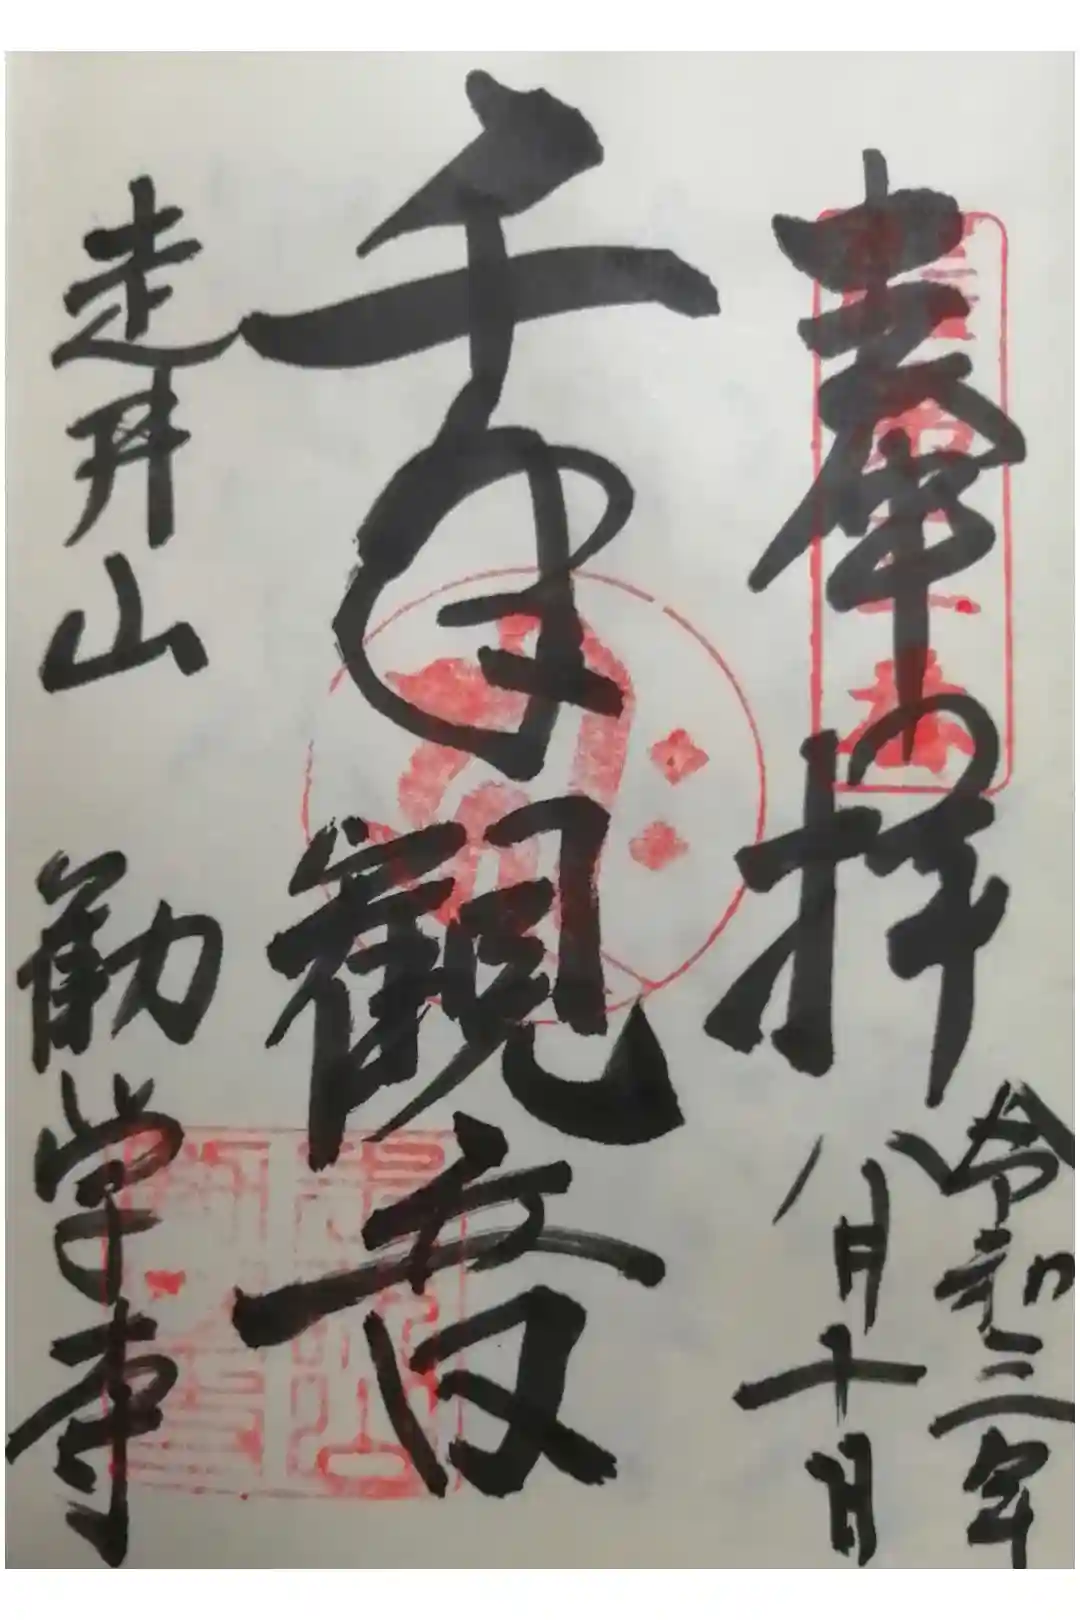 奉拝
令和三年
八月十日
千手観音
走井山 勧学寺